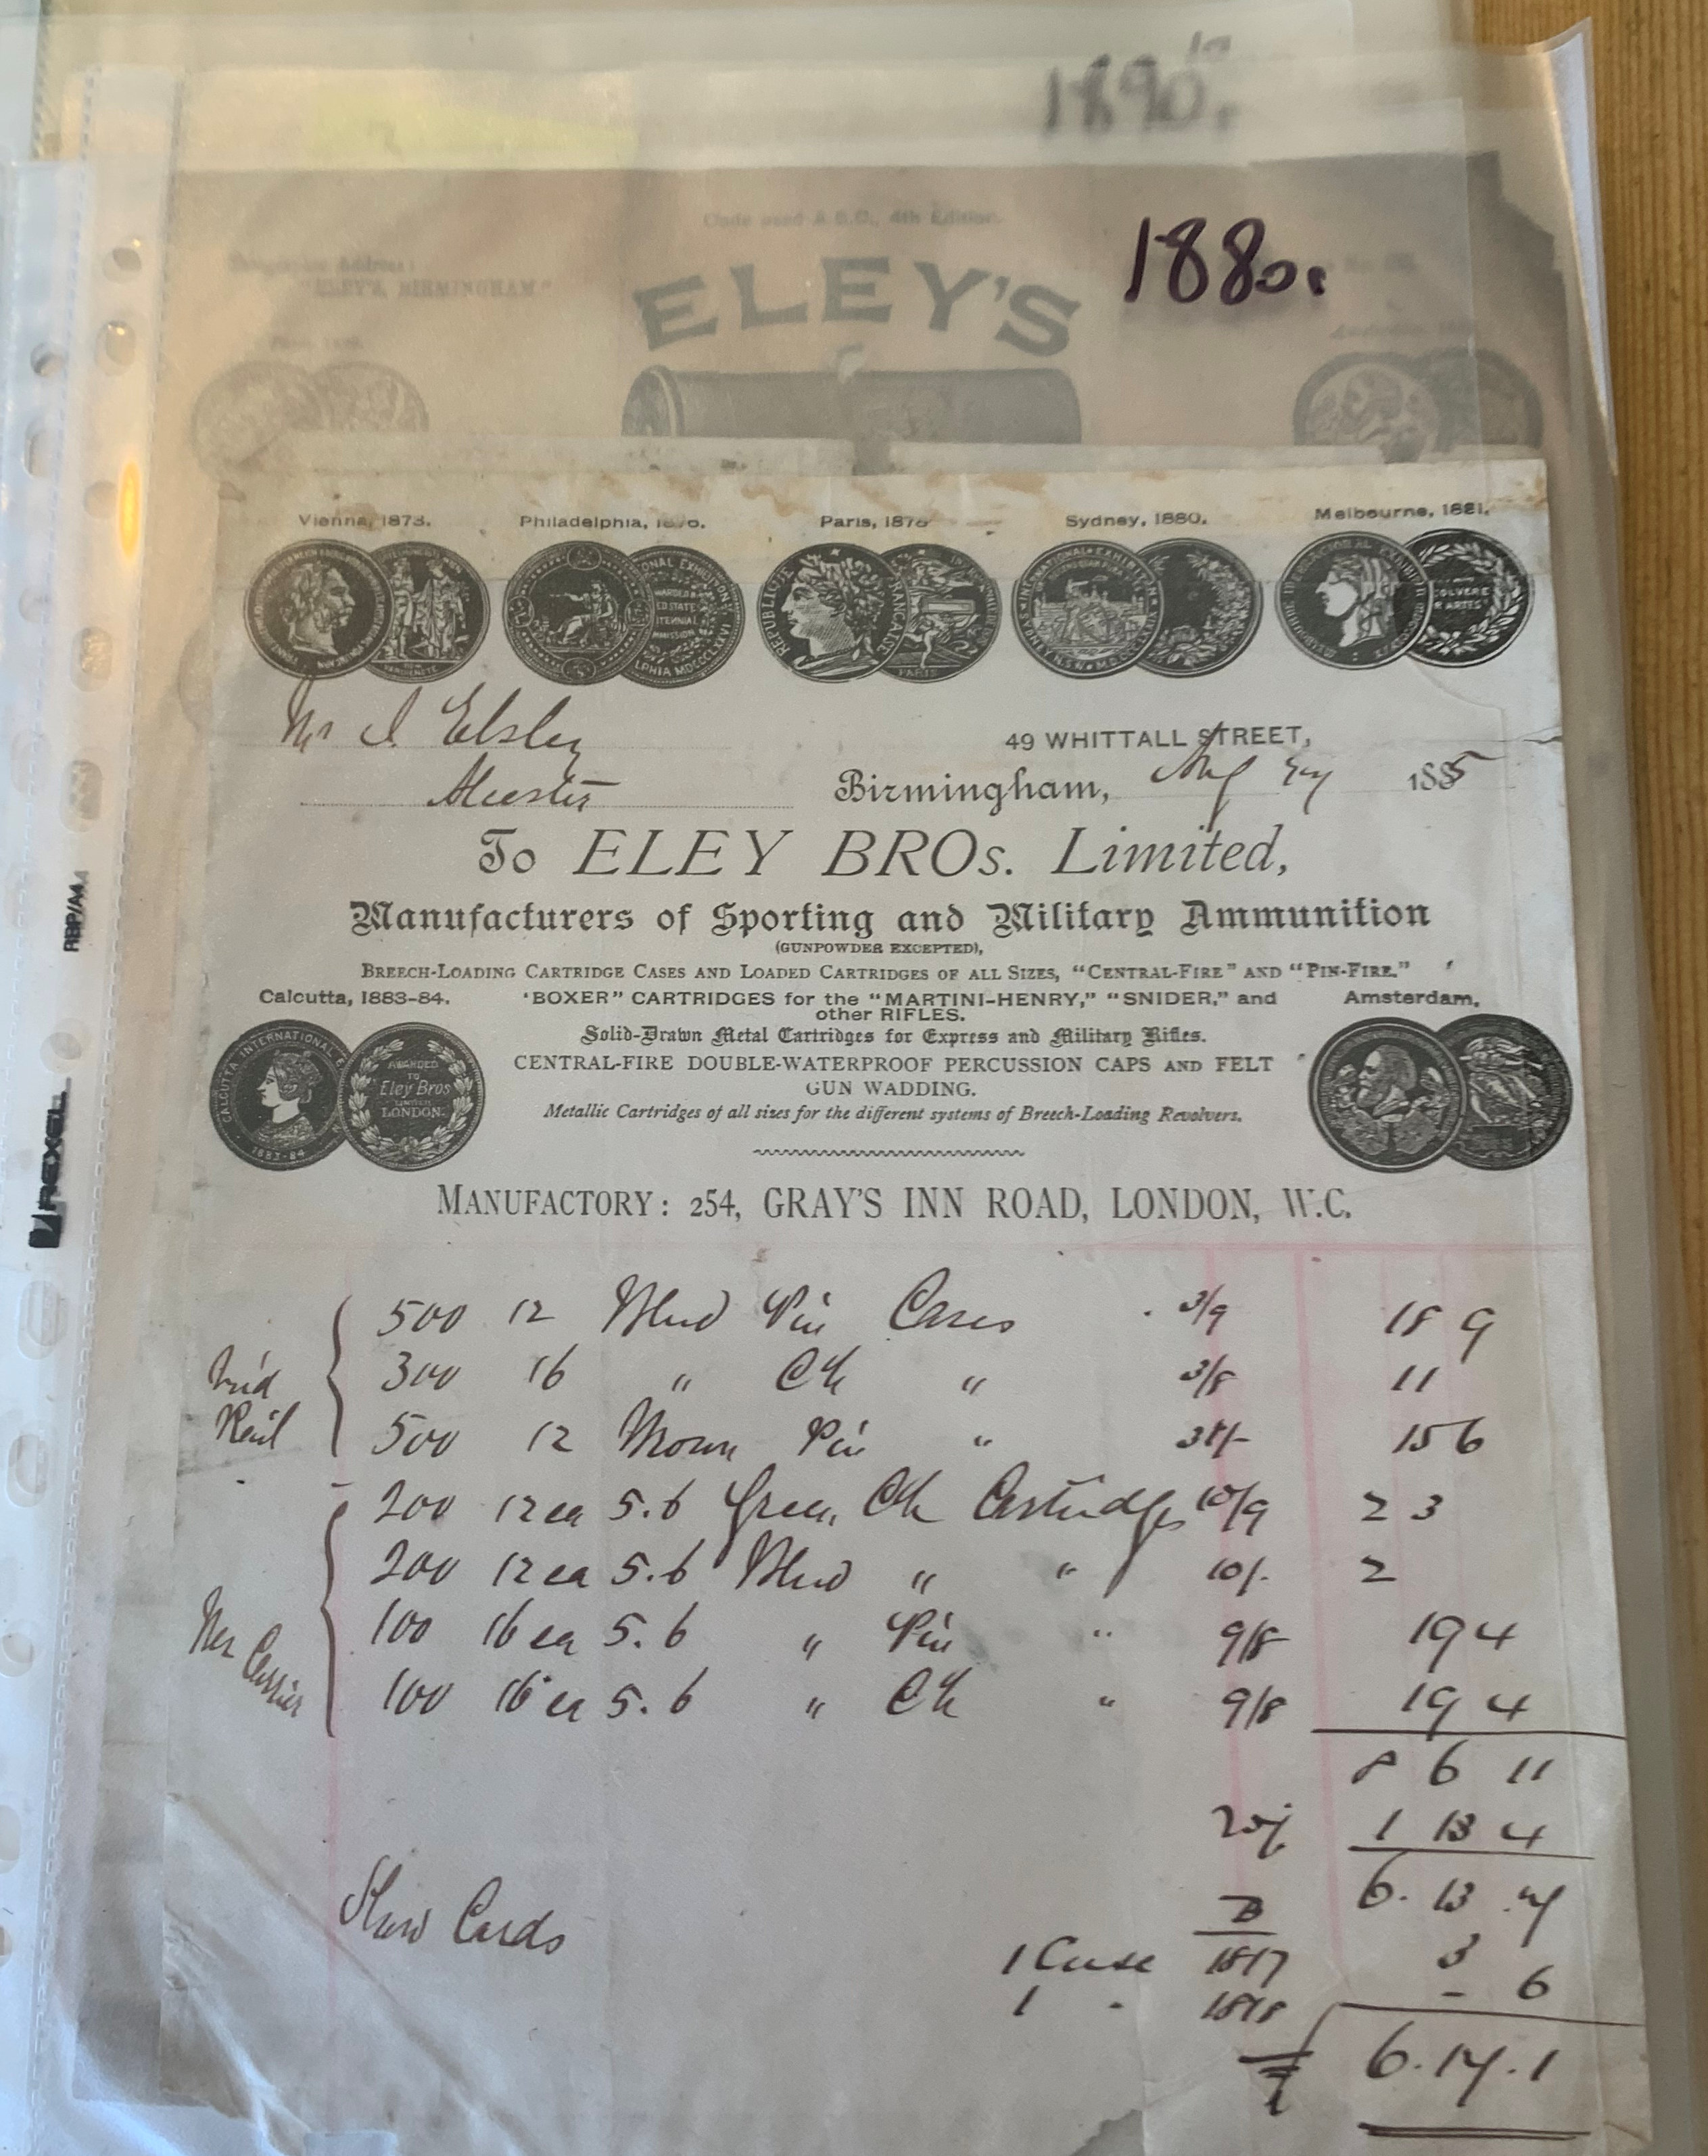 1890.
Code used A.B.C., 4th Edition.
1880.
"ELEY'S, BIRMINGHAM."
ELEY'S
Vienna, 1873. Philadelphia, 1876. Paris, 1878 Sydney, 1880. Melbourne, 1881.
Mr I Elsley
49 WHITTALL STREET,
Birmingham, Aug 1885
To ELEY BROs. Limited,
Manufacturers of Sporting and Military Ammunition
(GUNPOWDER EXCEPTED),
BREECH-LOADING CARTRIDGE CASES AND LOADED CARTRIDGES OF ALL SIZES, "CENTRAL-FIRE" AND "PIN-FIRE."
Calcutta, 1883-84. 'BOXER" CARTRIDGES for the "MARTINI-HENRY," "SNIDER," and Amsterdam,
other RIFLES.
Solid-Drawn Metal Cartridges for Express and Military Rifles.
CENTRAL-FIRE DOUBLE-WATERPROOF PERCUSSION CAPS AND FELT
GUN WADDING.
Metallic Cartridges of all sizes for the different systems of Breech-Loading Revolvers.
AWARDED
TO
Eley Bros
LIMITED
LONDON.
CALCUTTA INTERNATIONAL
1883-84
MANUFACTORY: 254, GRAY'S INN ROAD, LONDON, W.C.
500 12 Blue Pin Cases 3/9 18 9
300 16 " " 3/8 11
500 12 Brown Pin " 15 6
200 12 ea 5.6 Green Cartridges 10/9 2 3
200 12 ea 5.6 Blue " " 10/- 2
100 16 ea 5.6 " Pin " 9/8 19 4
100 16 ea 5.6 " " 9/8 19 4
8 6 11
1 13 4
6. 13 7
Show Cards
1 Case 1817
1 " 1818 - 6
6.14.1
REXEL
RBP/A4